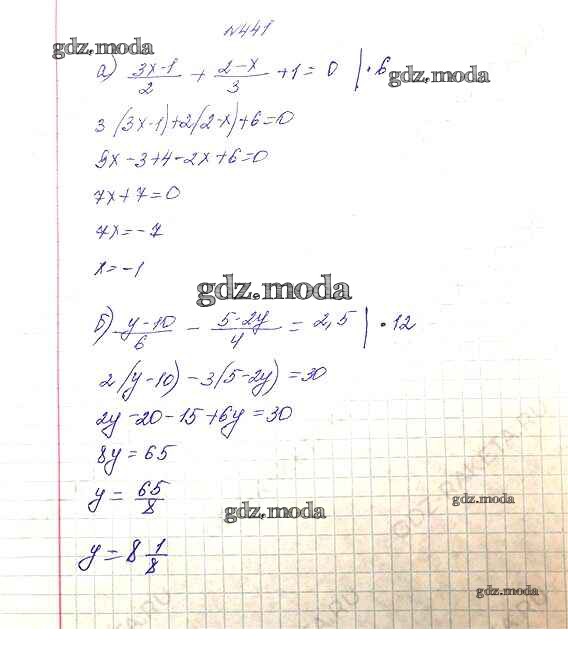 №441
gdz.moda
а) (3x-1)/2 + (2-x)/3 + 1 = 0 | · 6
gdz.moda
3(3x-1)+2(2-x)+6=0
9x-3+4-2x+6=0
7x+7=0
7x=-7
x=-1
gdz.moda
б) (y-10)/6 - (5-2y)/4 = 2,5 | · 12
2(y-10)-3(5-2y)=30
2y-20-15+6y=30
8y=65
y=65/8
gdz.moda
gdz.moda
y=8 1/8
gdz.moda
GDZ-RAKETA.RU